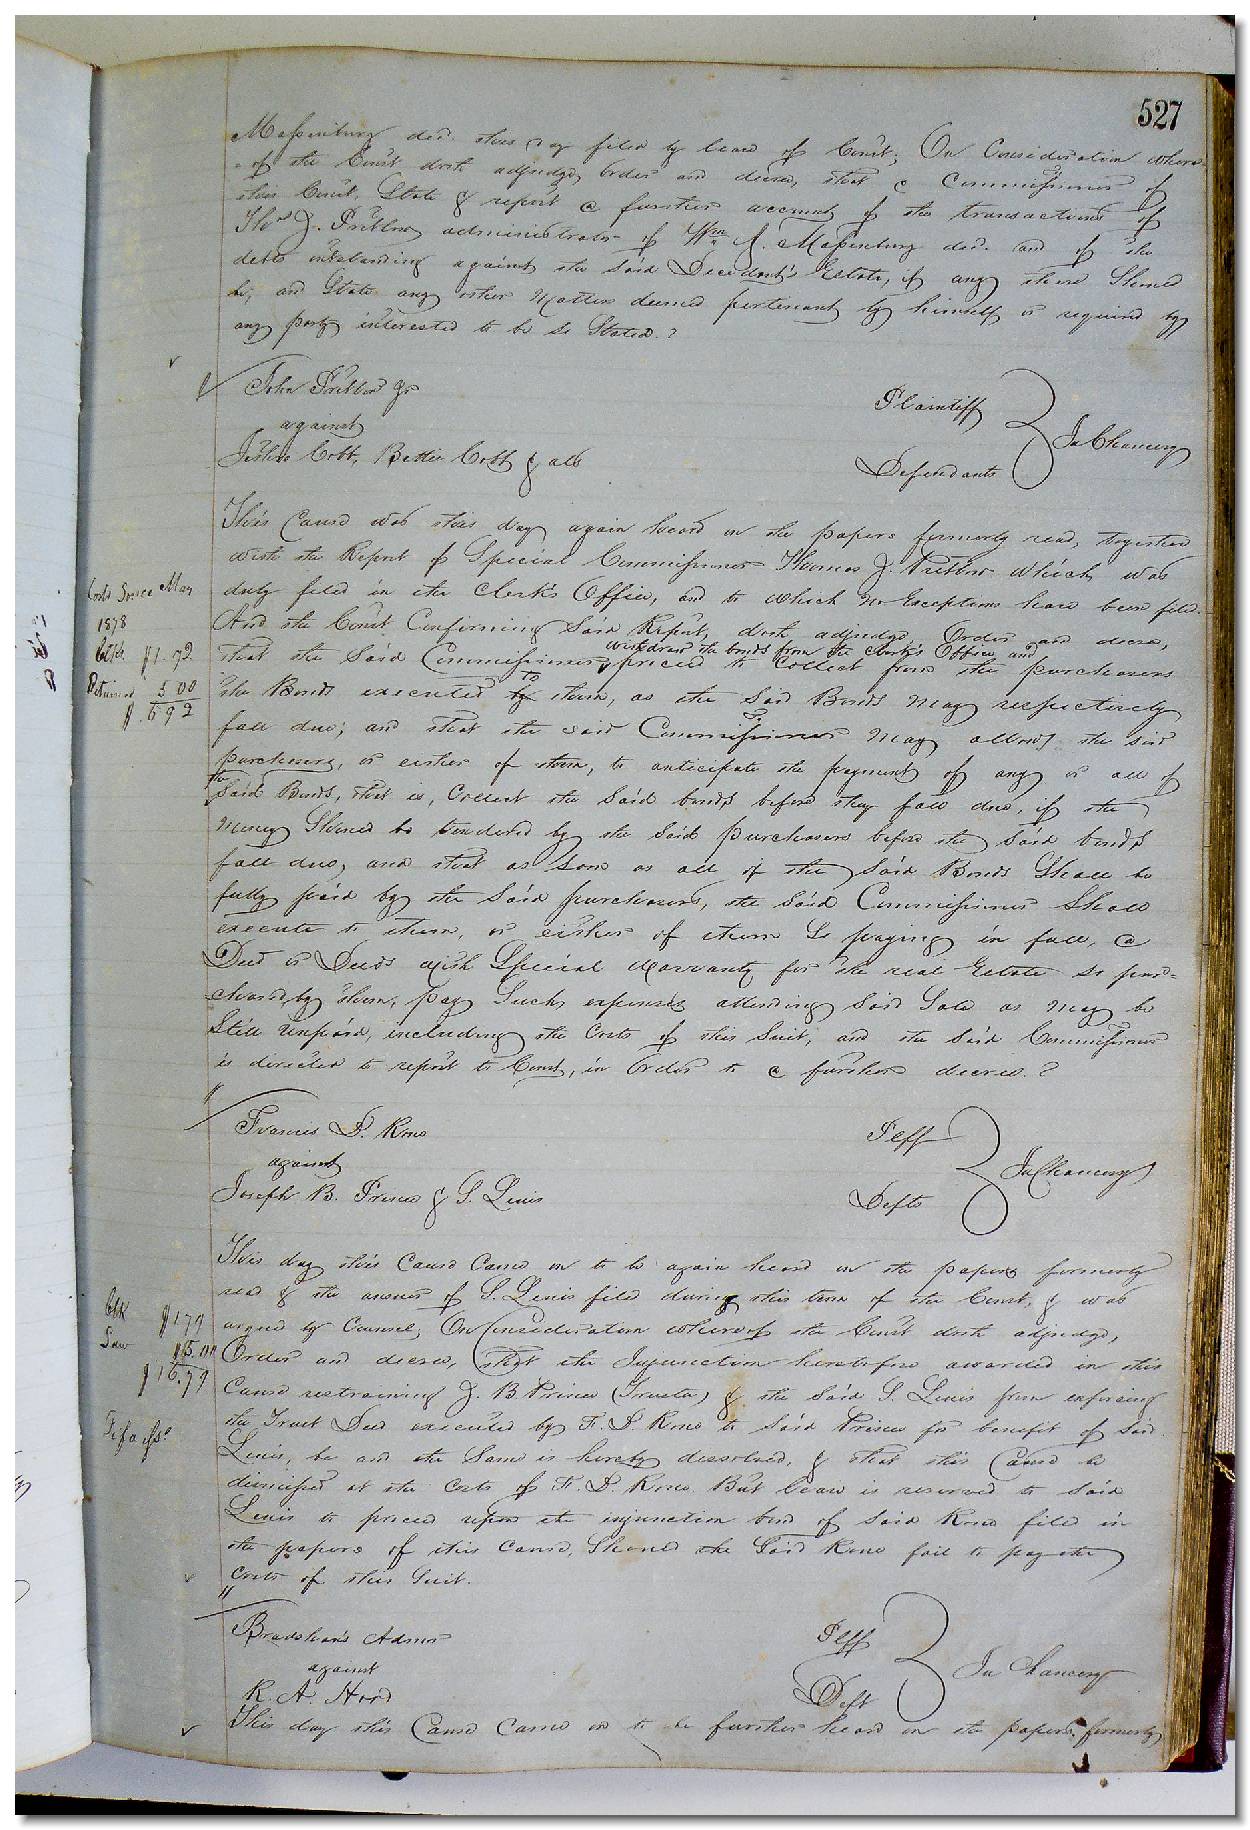 527
Massenburg decd. this day filed by leave of Court; On Consideration where-
of the Court doth adjudge, order and decree, that a Commissioner of
this Court, State & report a further account of the transactions of
Tho⁠s J. Pretlow administrator of Wm A. Massenburg decd. and of the
debts outstanding against the said Decedent's Estate, if any there should
be, and State any other Matters deemed pertinent by himself or required by
any party interested to be so Stated.
John Pretlow Jr Plaintiff
against In Chancery
Cobb, Bettie Cobb & als Defendants
This Cause was this day again heard on the papers formerly read, together
with the Report of Special Commissioner Thomas J. Pretlow which was
duly filed in the Clerk's Office, and to which no Exceptions have been filed.
And the Court Confirming said Report, doth adjudge, Order and decree,
withdraw the bonds from the Clerk's Office and
that the Said Commissioner proceed to Collect from the purchasers
the Bonds executed to them, as the Said Bonds may respectively
fall due; and that the said Commissioner may allow the said
purchasers, or either of them, to anticipate the payment of any or all of
Said Bonds, that is, Collect the Said bonds before they fall due, if the
money Should be tendered by the Said purchasers before the said bonds
fall due, and that as soon as all of the Said Bonds Shall be
fully paid by the Said purchasers, the Said Commissioner Shall
execute to them, or either of them So paying in full, a
Deed or Deeds with Special Warranty for the real Estate so pur-
chased by them, pay Such expenses attending Said Sale as may be
Still unpaid, including the Costs of this Suit, and the Said Commissioner
is directed to report to Court, in Order to a further decree.
Costs Since May
1878
Clk $1.92
5 00
$ 6 92
Francis P. Plff
against In Chancery
Joseph B. Prince & S. Lewis Defts
This day this Cause Came on to be again heard on the papers formerly
read & the answer of S. Lewis filed during this term of the Court, & was
argued by Counsel; On Consideration whereof the Court doth adjudge,
Order and decree, that the Injunction heretofore awarded in this
Cause restraining J. B Prince (Trustee) & the Said S. Lewis from enforcing
the Trust Deed executed by to Said Prince for benefit of Said
Lewis, be and the Same is hereby dissolved, & that this Cause be
dismissed at the Costs of But leave is reserved to Said
Lewis to proceed upon the injunction bond of Said filed in
the papers of this Cause, Should the Said fail to pay the
Costs of this Suit.
Clk $1.79
$15.00
$16.79
Bradshaw's Admr Plff
against In Chancery
R. A. Deft
This day this Cause Came on to be further heard on the papers formerly